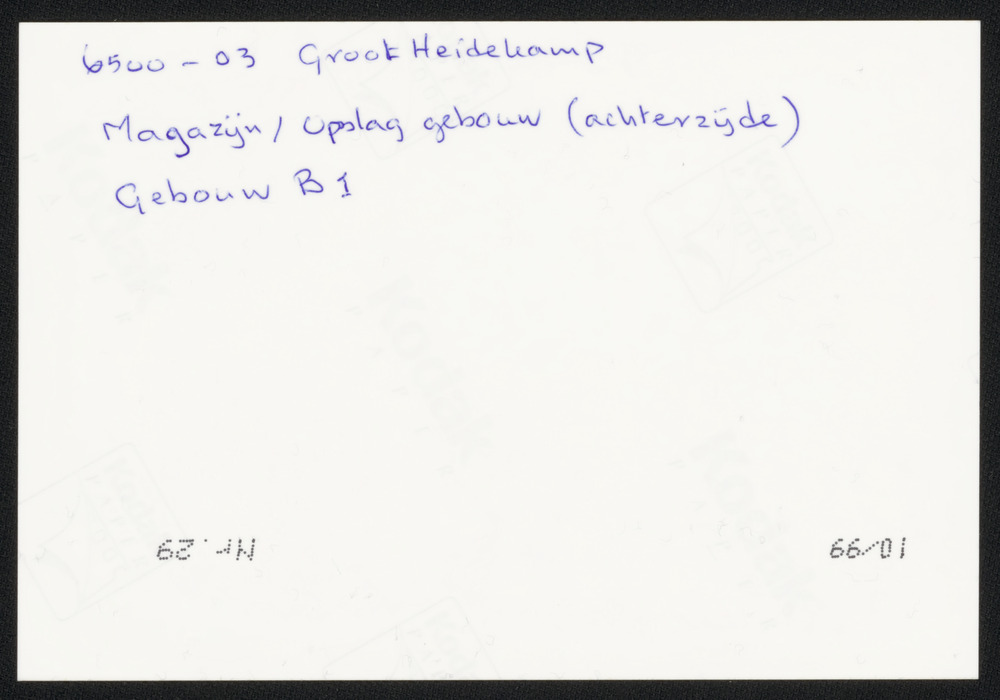 6500 - 03 Groot Heidekamp
Magazijn / Opslag gebouw (achterzijde)
Gebouw B 1
Nr. 29
10/99
Kodak